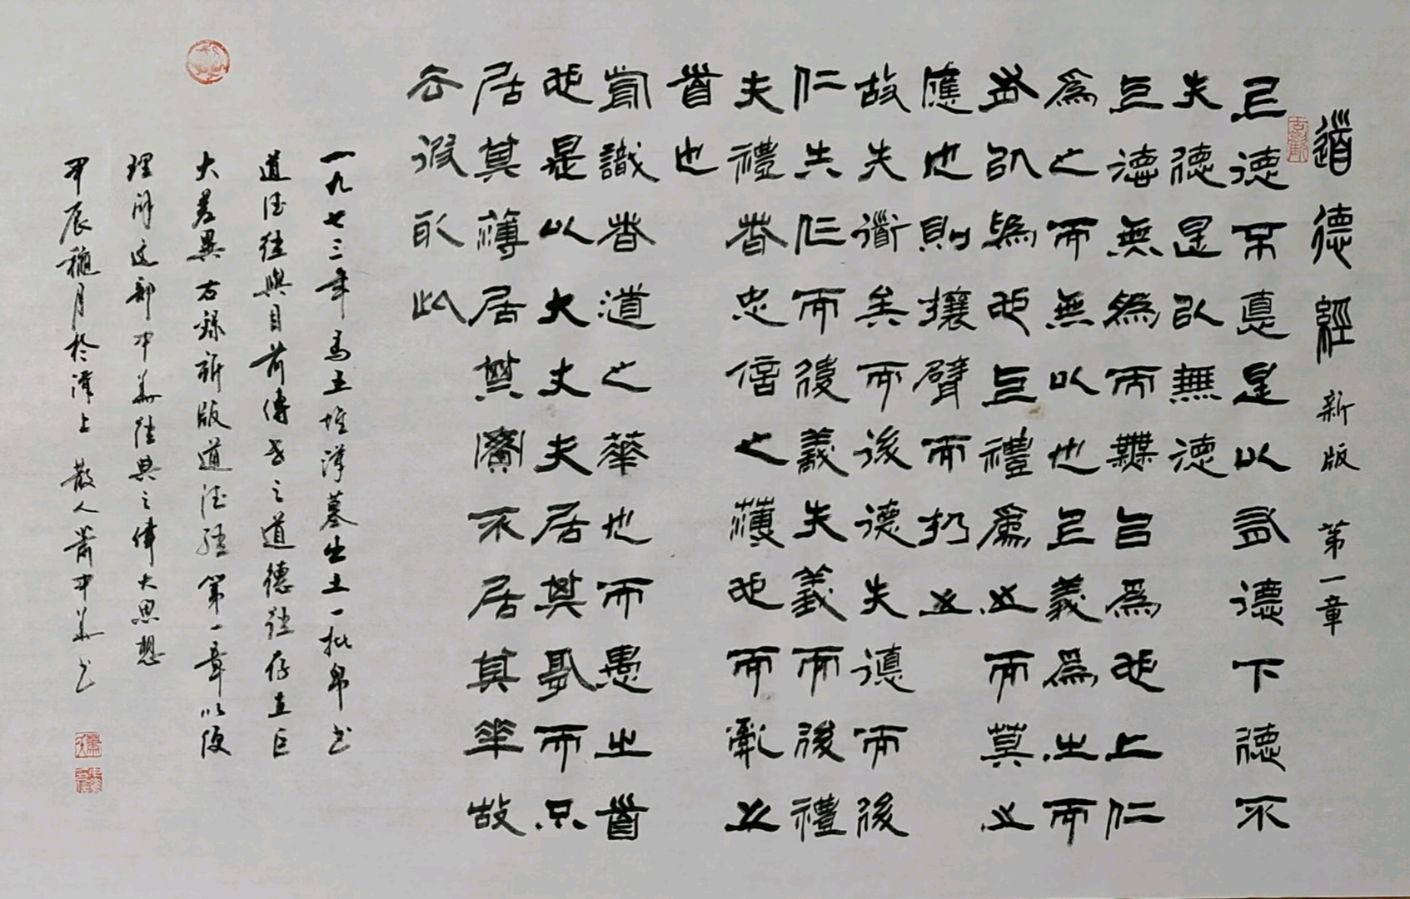 道德經 新版 第一章
上德不悳是以有德下德不
失德是以無德
上德無為而無以為也上仁
為之而無以為也上義為之而
有以為也上禮為之而莫之
應也則攘臂而扔之
故失道矣而後德失德而後
仁失仁而後義失義而後禮
夫禮者忠信之薄也而亂之
首也
前識者道之華也而愚之首
也是以大丈夫居其厚而不
居其薄居其實不居其華故
去彼取此
一九七三年馬王堆漢墓出土一批帛书
道德經與目前傳世之道德經存在巨
大差異 右錄新版道德經第一章 以便
理解這部中華經典之偉大思想
甲辰穐月於漢上 散人蕭中華书